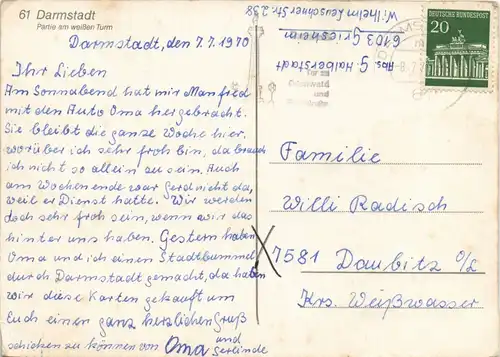 61 Darmstadt
Partie am weißen Turm
Darmstadt, den 7.7.1970
Ihr Lieben
Am Sonnabend hat mir Manfred
mit den Auto Oma hergebracht.
Sie bleibt die ganze Woche hier,
worüber ich sehr froh bin, da brauch
ich nicht so allein zu sein. Auch
am Wochenende war Gerd nicht da,
weil er Dienst hatte. Wir werden
doch sehr froh sein, wenn wir das
hinter uns haben. Gestern haben
Oma und ich einen Stadtbummel
durch Darmstadt gemacht, da haben
wir diese Karten gekauft um
Euch einen ganz herzlichen Gruß
schicken zu können von Oma und
Gerlinde
Abs. G. Halberstadt
6103 Griesheim
Wilhelm Leuschner Str. 238
DEUTSCHE BUNDESPOST
20
Tor zu
Odenwald
und
Bergstraße
Familie
Willi Radisch
7581 Daubitz O/L
Krs. Weißwasser